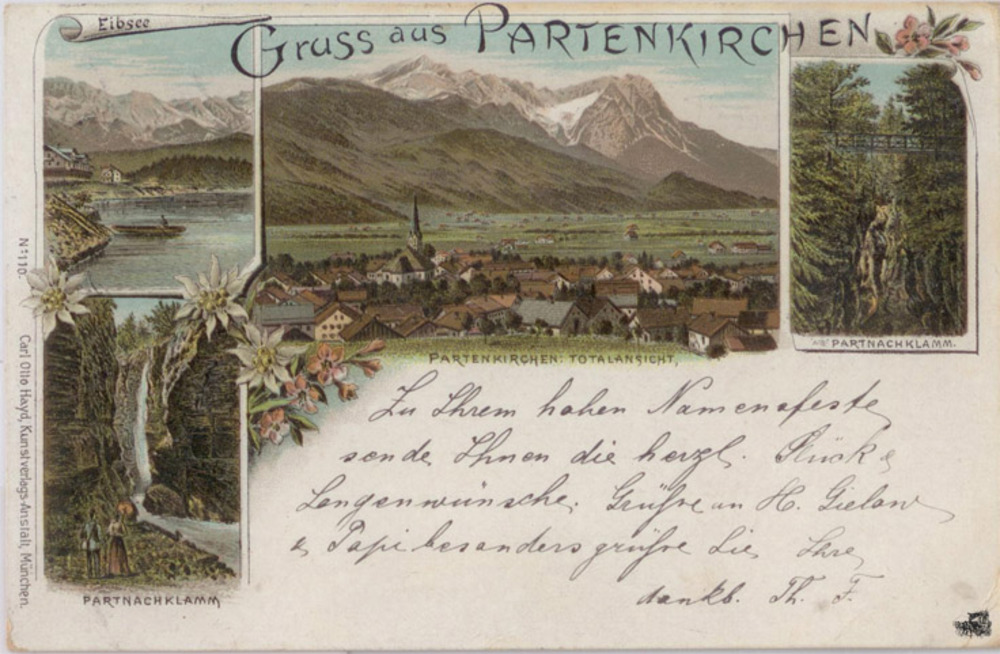 Eibsee
Gruss aus PARTENKIRCHEN
PARTENKIRCHEN: TOTALANSICHT,
PARTNACHKLAMM.
PARTNACHKLAMM
No 110.
Carl Otto Hayd, Kunstverlags-Anstalt, München.
Zu Ihrem hohen Namensfeste
sende Ihnen die herzl. Glück &
Segenswünsche. Grüße an H.
& Papi besonders grüße Sie, Ihre
dankb. Th. F.